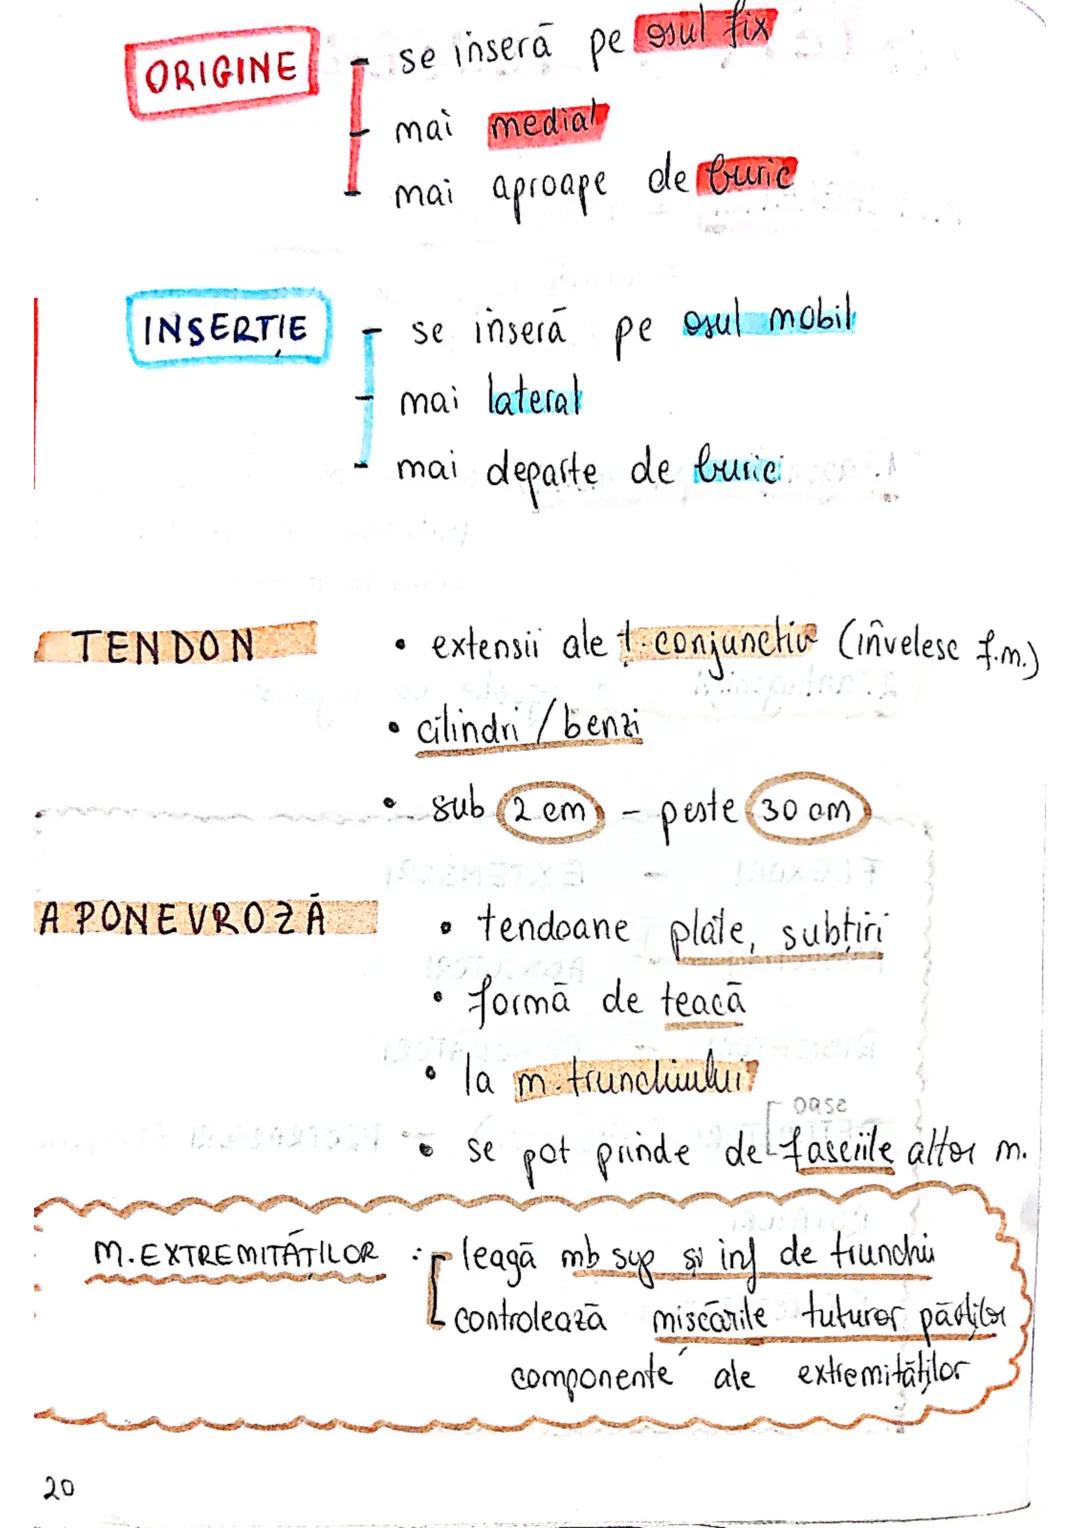 ORIGINE
se inseră pe osul fix
mai medial
mai aproape de buric
INSERȚIE
se inseră pe osul mobil
mai lateral
mai departe de buric
TENDON
• extensii ale ț. conjunctiv (învelesc f.m.)
• cilindri / benzi
• sub 2 cm - peste 30 cm
APONEVROZĂ
• tendoane plate, subțiri
• formă de teacă
• la m. trunchiului
oase
• se pot prinde de fasciile altor m.
M. EXTREMITĂȚILOR : leagă mb sup și inf de trunchi
controlează mișcările tuturor părților
componente ale extremităților
20